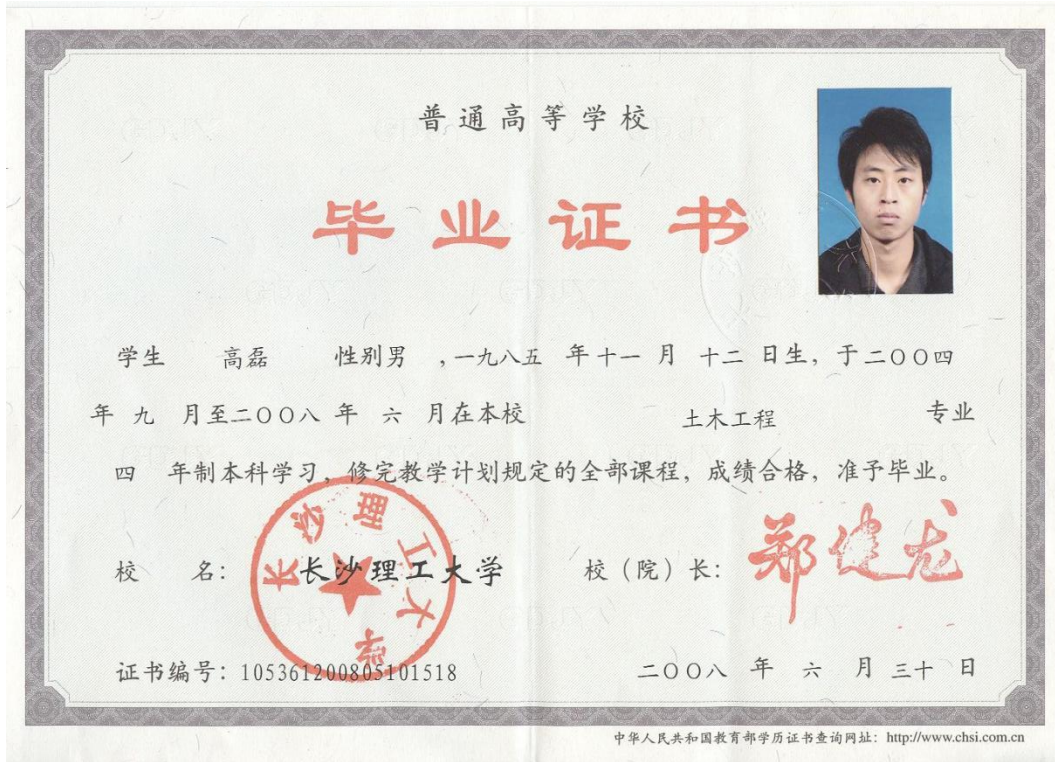 普通高等学校
毕业证书
学生 高磊 性别男 ,一九八五 年十一 月 十二 日生, 于二〇〇四
年 九 月至二〇〇八 年 六 月在本校 土木工程 专业
四 年制本科学习, 修完教学计划规定的全部课程, 成绩合格, 准予毕业。
校 名: 长沙理工大学 校(院)长: 郑健龙
长沙理工大学
证书编号: 105361200805101518 二〇〇八 年 六 月 三十 日
中华人民共和国教育部学历证书查询网址: http://www.chsi.com.cn